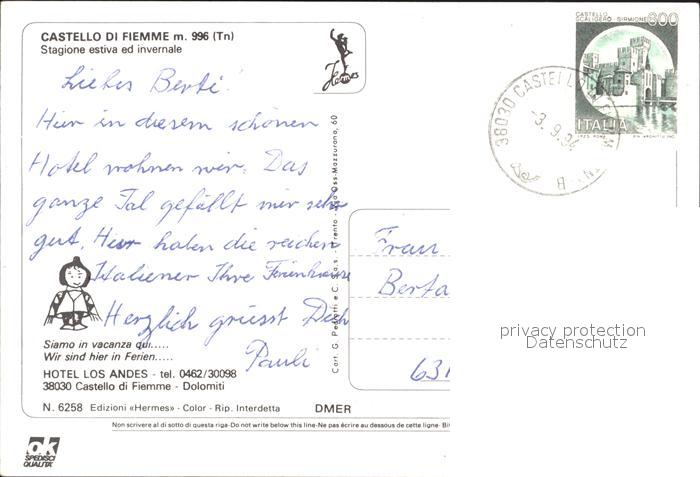 CASTELLO DI FIEMME m. 996 (Tn)
Stagione estiva ed invernale
Hermes
Liebes Berti!
Hier in diesem schönen
Hotel wohnen wir. Das
ganze Tal gefällt mir sehr
gut. Hier haben die reichen
Italiener Ihre Ferienhäuser
Herzlich grüsst Dich
Pauli
Siamo in vacanza qui.....
Wir sind hier in Ferien.....
HOTEL LOS ANDES - tel. 0462/30098
38030 Castello di Fiemme - Dolomiti
N. 6258 Edizioni «Hermes» - Color - Rip. Interdetta
DMER
Non scrivere al di sotto di questa riga-Do not write below this line-Ne pas écrire au dessous de cette ligne-Bit
ok
SPEDISCI
QUALITÀ
Cart. G. Pedrotti e C. s.a.s. - Trento - Via Oss-Mazzurana, 60
CASTELLO
SCALIGERO - SIRMIONE
600
ITALIA
38030 CASTELLO
-3.9.94
B
Frau
Berta
631
privacy protection
Datenschutz